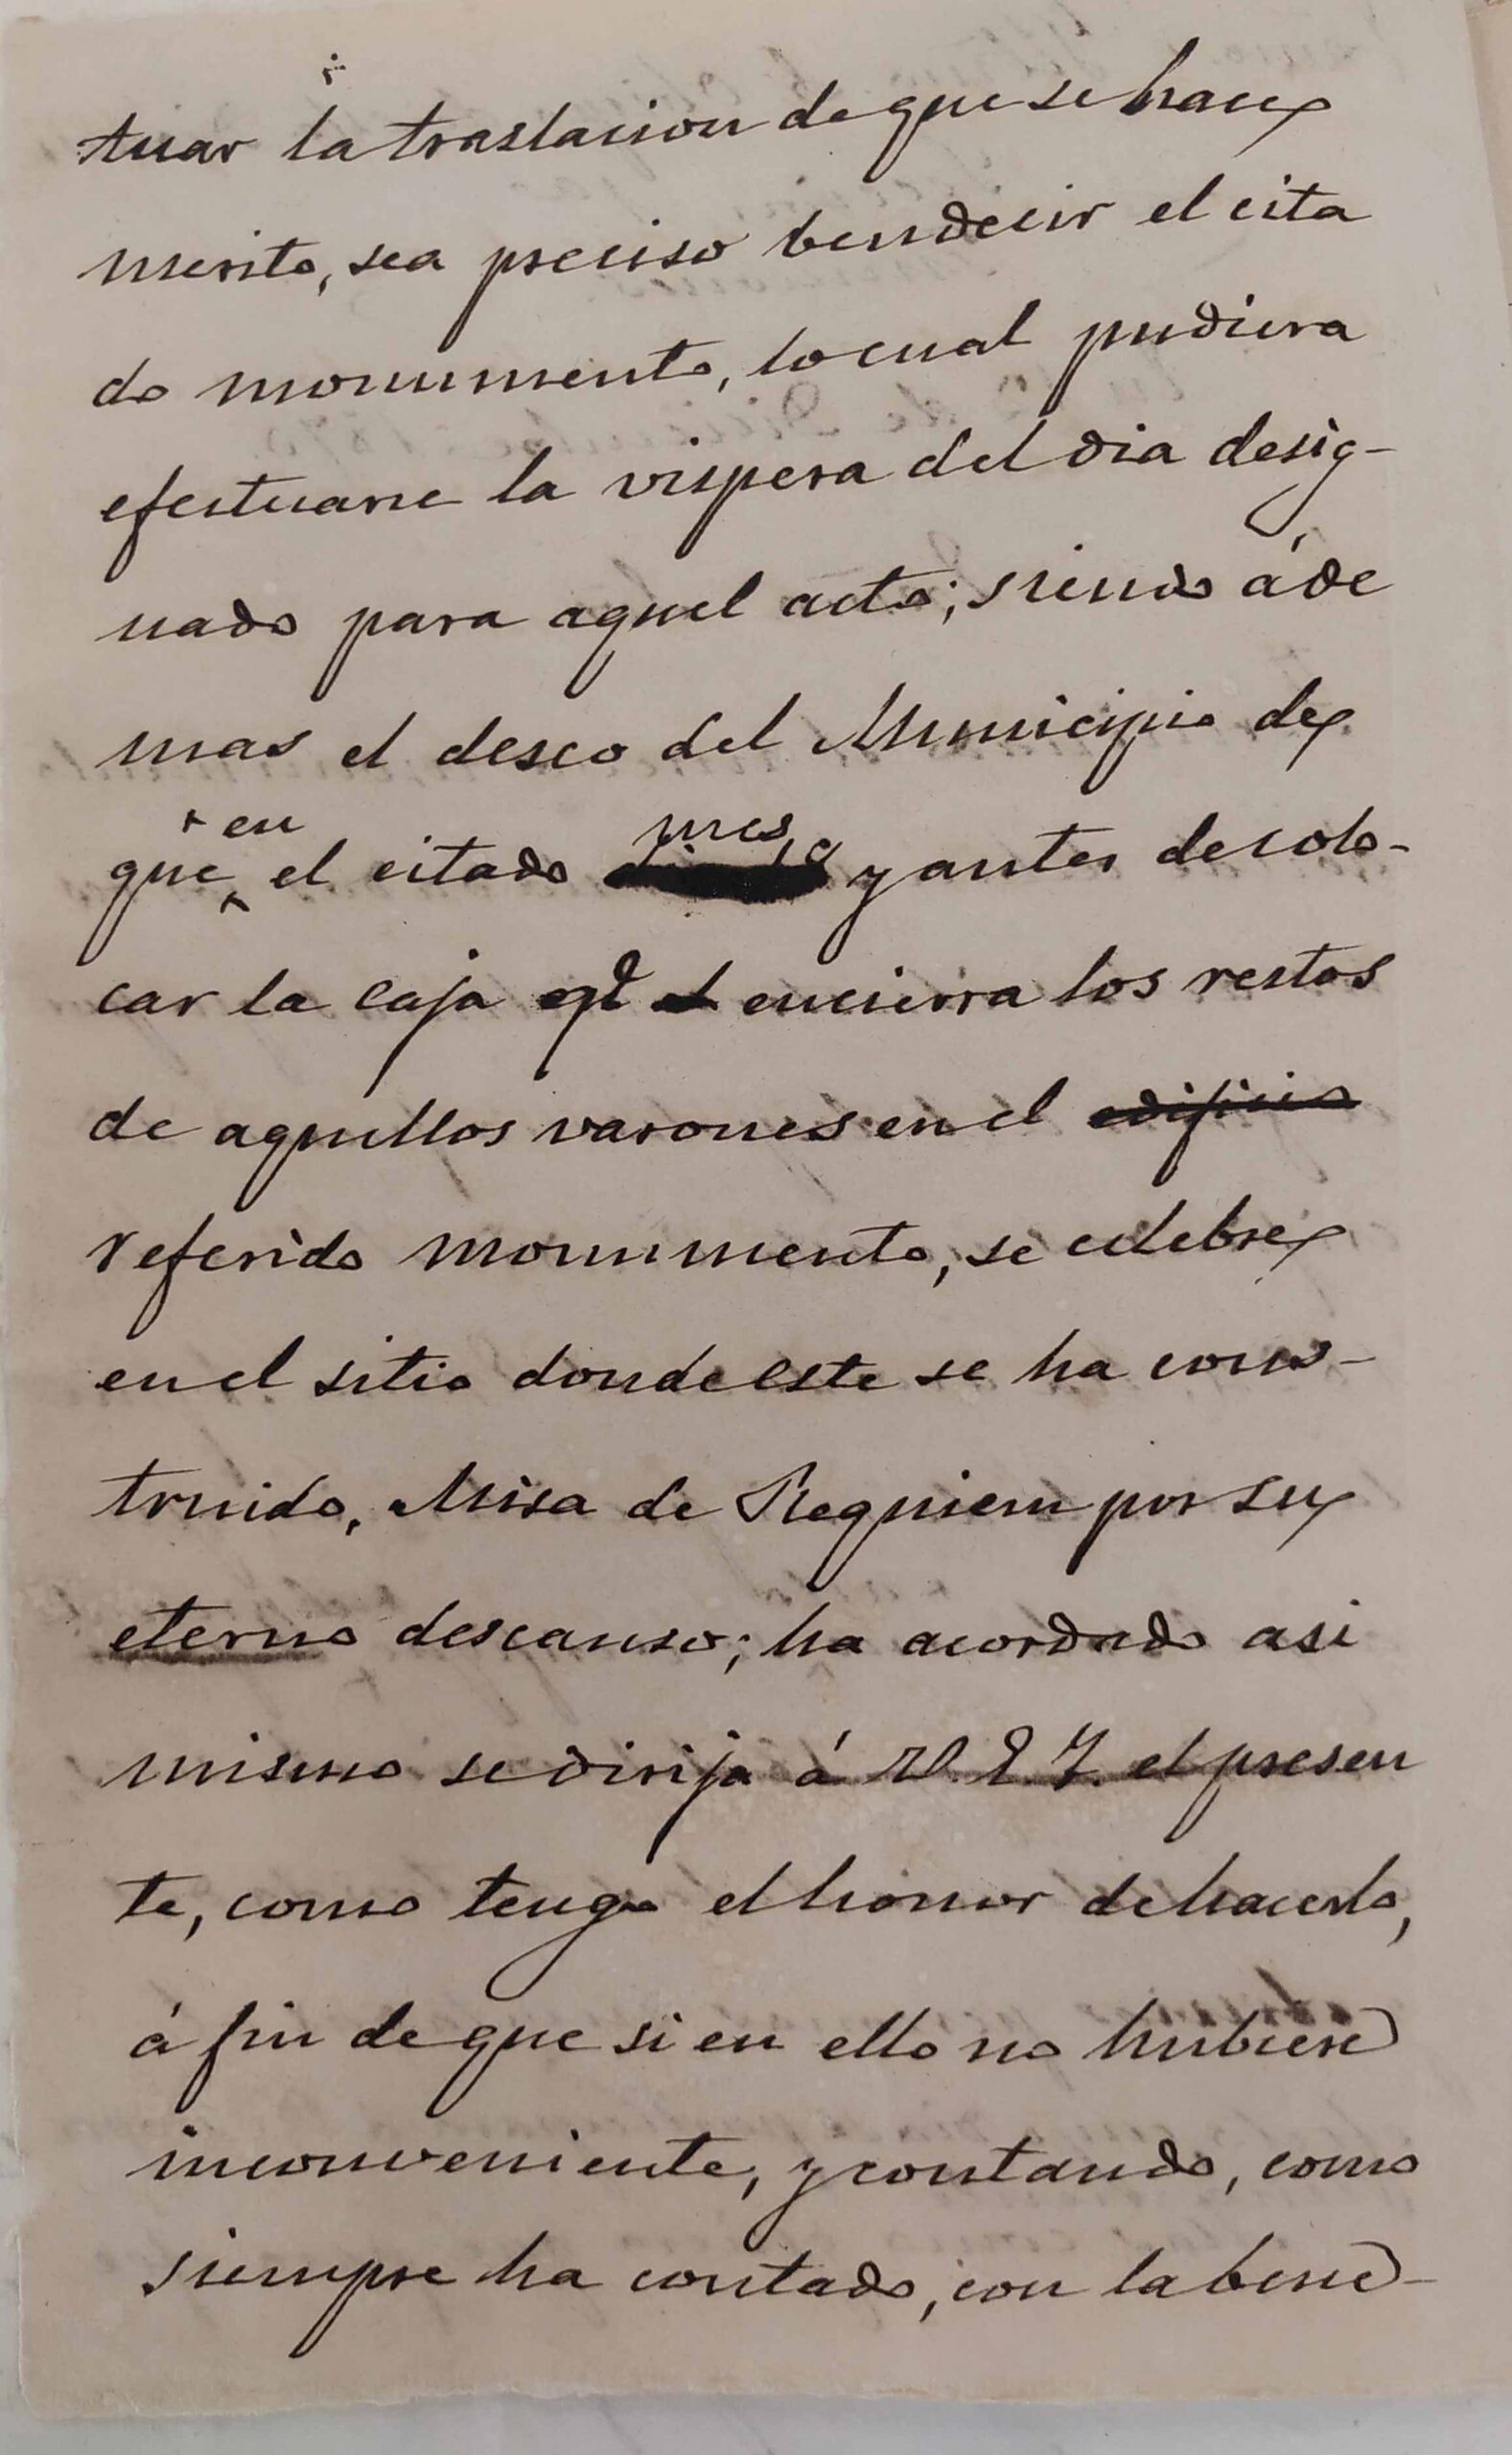 tuar la traslacion de que se hace
merito, sea preciso bendecir el cita
do monumento, lo cual pudiera
efectuarse la vispera del dia desig-
nado para aquel acto; siendo áde
mas el deseo del Municipio de
en mes
que el citado y antes de colo-
car la caja qe encierra los restos
de aquellos varones en el edificio
referido monumento, se celebre
en el sitio donde este se ha cons-
truido, Misa de Requiem por su
eterno descanso; ha acordado asi
mismo se dirija á V. E. Y. el presen
te, como tengo el honor de hacerlo,
á fin de que si en ello no hubiese
inconveniente, y contando, como
siempre ha contado, con la bene-